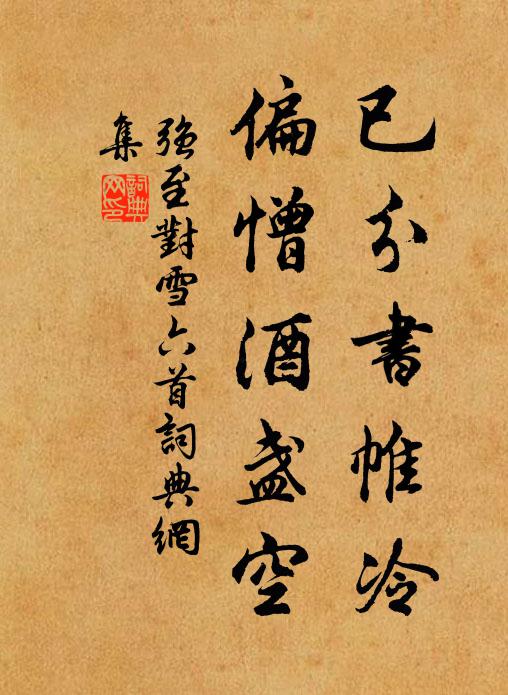 已分書帷冷
偏憎酒盏空
強至對雪六首詞典網
集
詞典網印